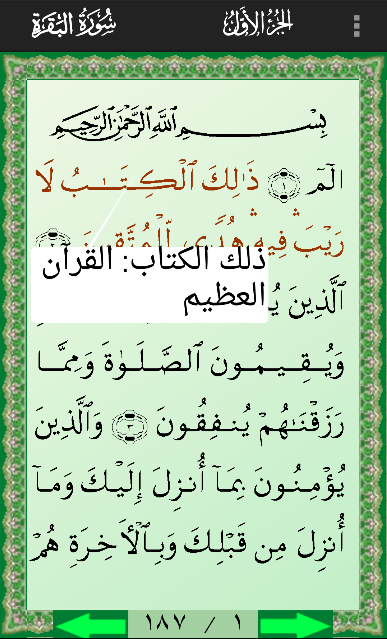 سُورَةُ البَقَرَةِ الجُزْءُ الأَوَّلُ
بِسْمِ ٱللَّهِ ٱلرَّحْمَٰنِ ٱلرَّحِيمِ
الٓمٓ ١ ذَٰلِكَ ٱلْكِتَـٰبُ لَا
رَيْبَ ۛ فِيهِ ۛ هُدًى لِّلْمُتَّقِينَ ٢
ذلك الكتاب: القرآن
العظيم
ٱلَّذِينَ
وَيُقِيمُونَ ٱلصَّلَوٰةَ وَمِمَّا
رَزَقْنَـٰهُمْ يُنفِقُونَ ٣ وَٱلَّذِينَ
يُؤْمِنُونَ بِمَآ أُنزِلَ إِلَيْكَ وَمَآ
أُنزِلَ مِن قَبْلِكَ وَبِٱلْأَخِرَةِ هُمْ
١ / ١٨٧